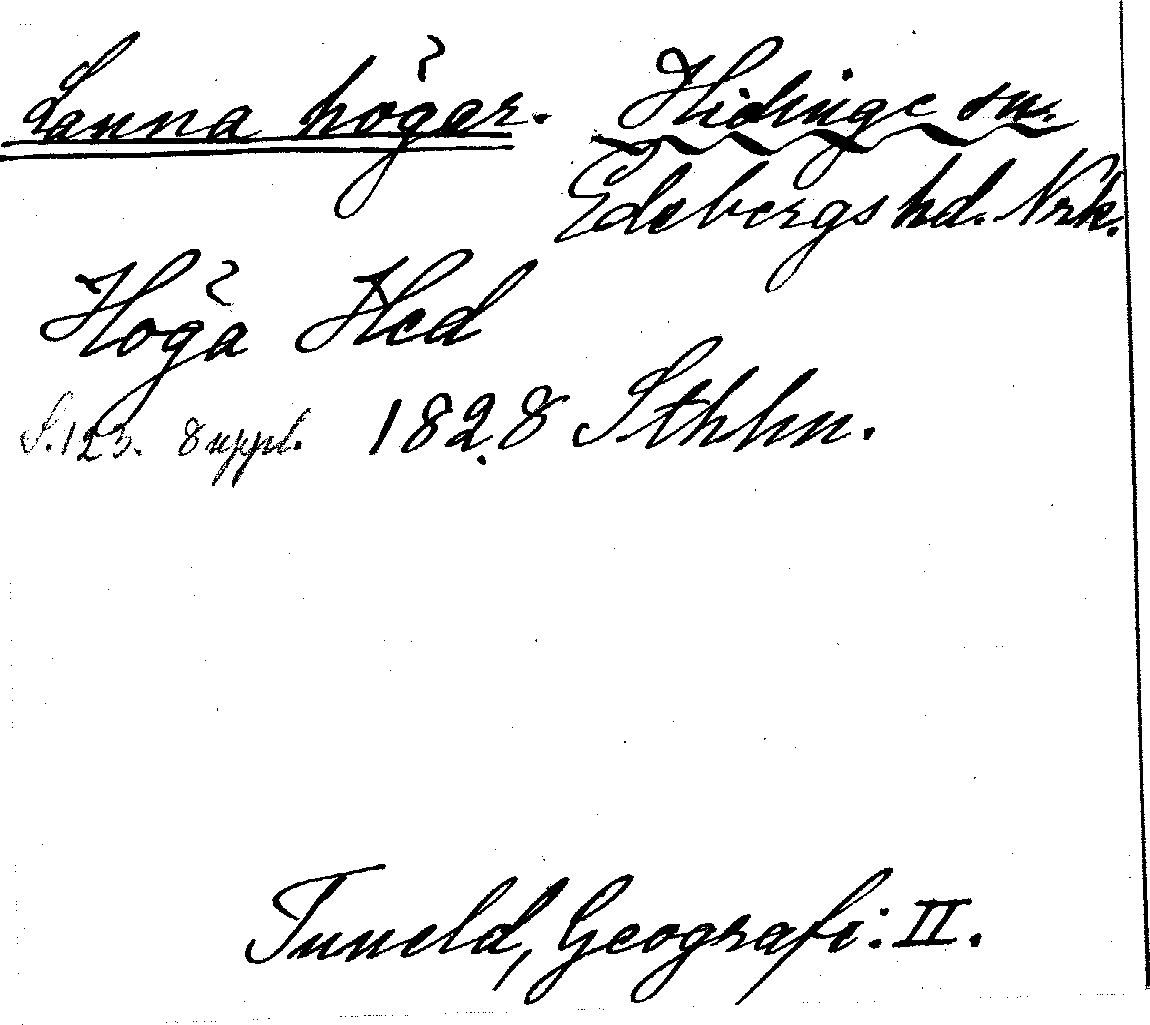 Lanna högar. Hidinge sn.
Edebergs hd. Nrk.
Höga Hed
S. 123. 8 uppl. 1828 Sthlm.
Tuneld, Geografi: II.